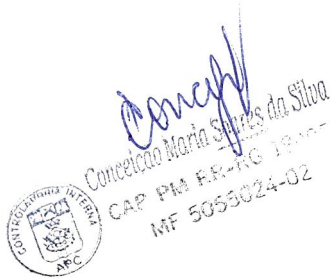 Conceição Maria Soares da Silva
CAP PM RR-RG
MF 5056024-02
CONTROLADORIA INTERNA